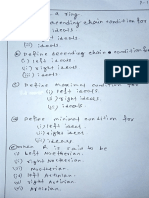 a ring
ascending chain condition for
ideals
right ideals
ideals
② Define descending chain condition for
i) left ideals
ii) right ideals
iii) ideals
Define maximal condition for
(i) left ideals
ii) right ideals
ideals
Define minimal condition for
(i) left ideal
right ideal
ideal
When R is said to be
i) left Noetherian.
ii) right Noetherian
iii) Noetherian
iv) left Artinian.
v) right Artinian
vi) Artinian.